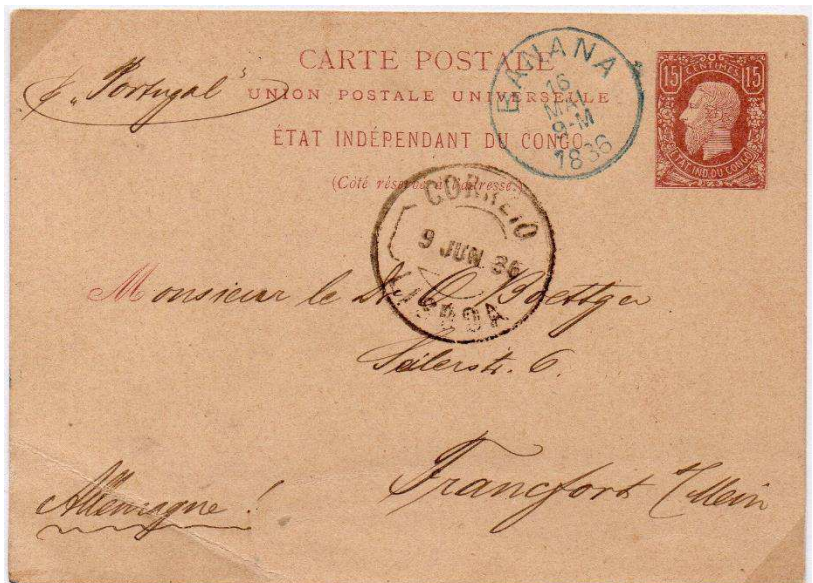 p. „Portugal“
CARTE POSTALE
UNION POSTALE UNIVERSELLE
ÉTAT INDÉPENDANT DU CONGO
(Côté réservé à l'adresse.)
BANANA
16
MAI
9-M
1886
15 CENTIMES 15
ÉTAT IND. DU CONGO
CORREIO
9 JUN 86
LISBOA
Monsieur le Dr. O. Boettger
Seilerstr. 6.
Francfort s/Mein
Allemagne!